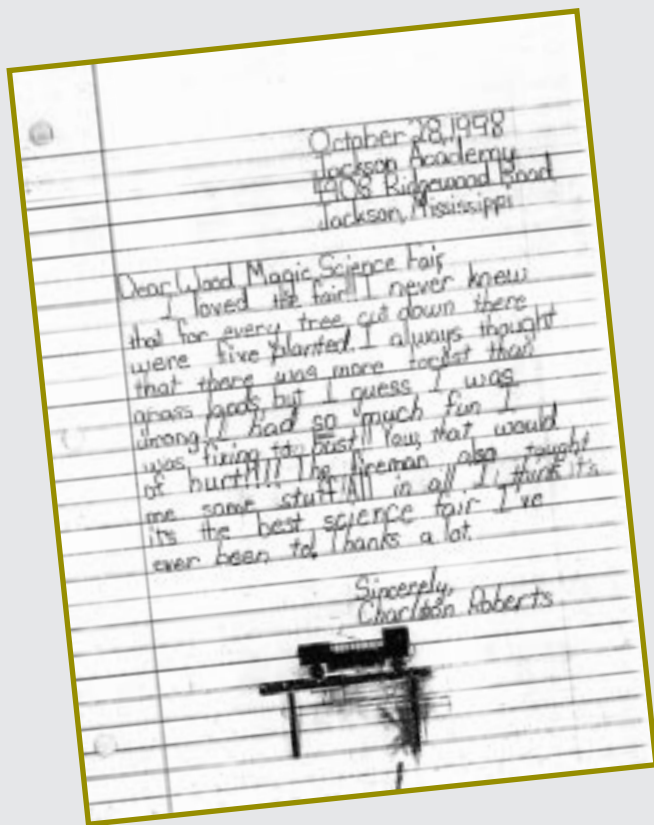 October 28, 1998
Jackson Academy
4908 Ridgewood Road
Jackson, Mississippi
Dear Wood Magic Science Fair,
I loved the fair!! I never knew
that for every tree cut down there
were five planted. I always thought
that there was more than
grass but I guess I was
wrong!! I had so much fun I
was fixing to bust!! Yow, that would
of hurt!!!! The fireman also taught
me some stuff! All in all I think it's
it's the best science fair I've
ever been to! Thanks a lot.
Sincerely,
Charlton Roberts